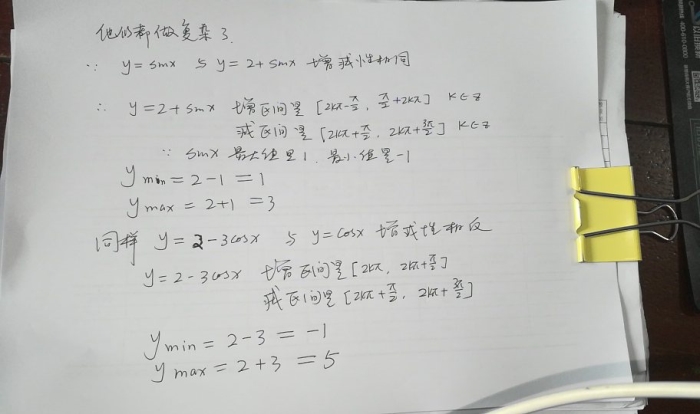 他们都做复杂了.
∵ y=sinx 与 y=2+sinx 增减性相同
∴ y=2+sinx 增区间是 [2kπ-π/2, π/2+2kπ] K∈Z
减区间是 [2kπ+π/2, 2kπ+3π/2] K∈Z
∵ sinx 最大值是1, 最小值是-1
y min = 2-1 = 1
y max = 2+1 = 3
同样 y=2-3cosx 与 y=cosx 增减性相反
y=2-3cosx 增区间是 [2kπ, 2kπ+π/2]
减区间是 [2kπ+π/2, 2kπ+3π/2]
y min = 2-3 = -1
y max = 2+3 = 5